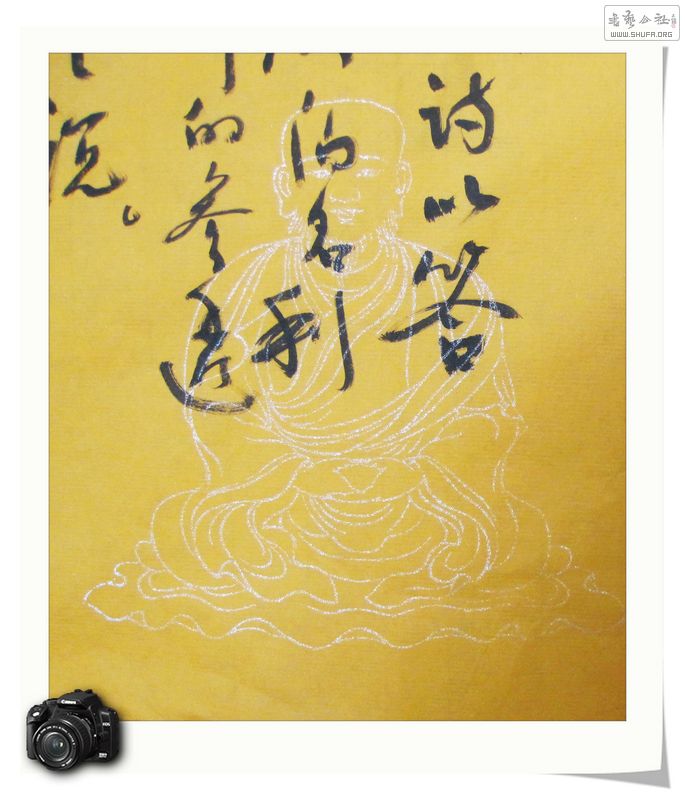 书艺公社
WWW.SHUFA.ORG
诗以答
名利
的参透
说。
Canon
EOS